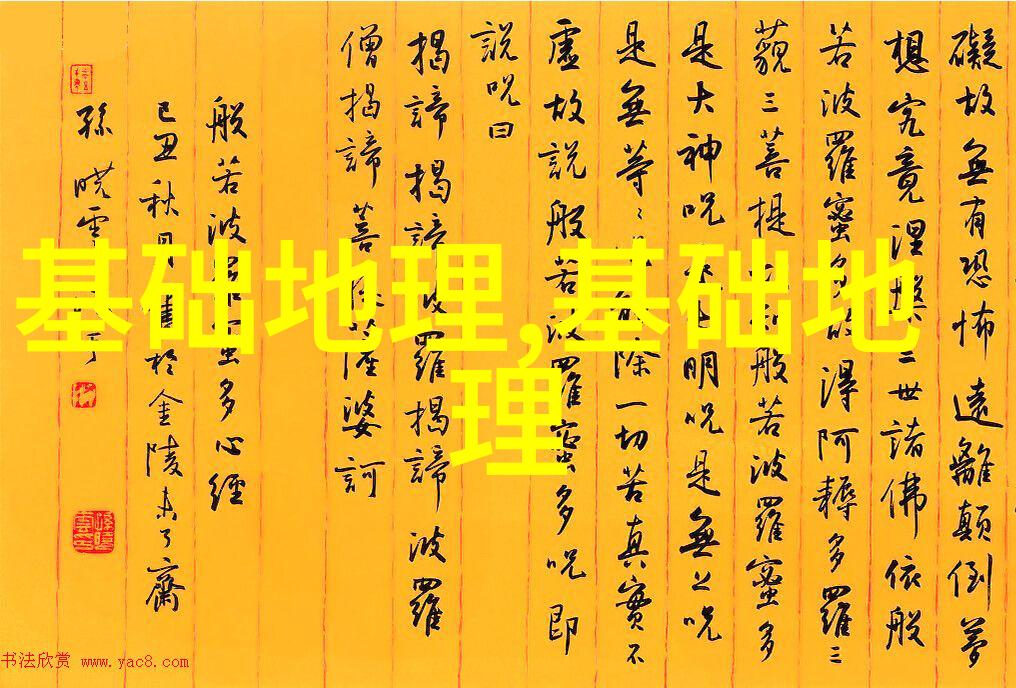 礙故無有恐怖遠離顛倒夢
想究竟涅槃三世諸佛依般
若波羅蜜多故得阿耨多羅三
藐三菩提故知般若波羅蜜多
是大神咒是大明咒是無上咒
是無等等咒能除一切苦真實不
虛故說般若波羅蜜多咒即
說咒曰
揭諦揭諦波羅揭諦波羅
僧揭諦菩提薩婆訶
般若波羅蜜多心經
己丑秋月書於金陵未了齋
孫曉雲
基础地理,基础地
理
书法欣赏 www.yac8.com